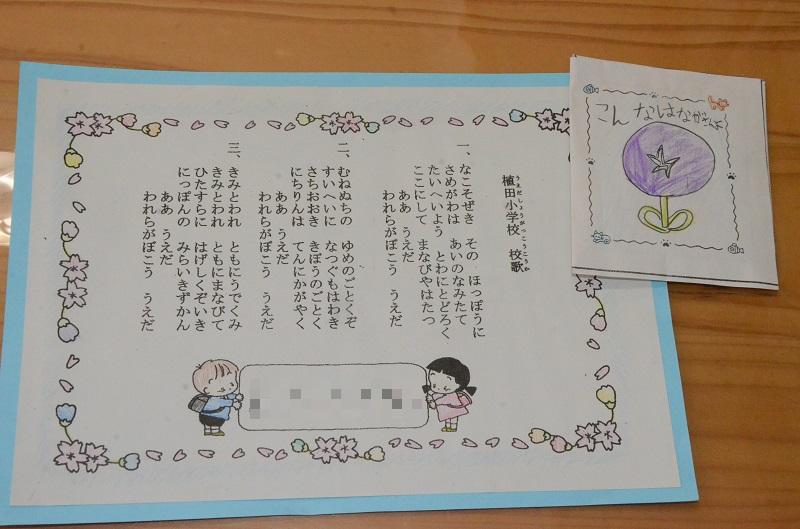 植田小学校 校歌
うえだしょうがっこうこうか
一、なこそぜき その ほっぽうに
さめがわは あいのなみたて
たいへいよう とわにとどろく
ここにして まなびやはたつ
ああ うえだ
われらがぼこう うえだ
二、むねぬちの ゆめのごとくぞ
すいへいに なつぐもはわき
さちおおき きぼうのごとく
にちりんは てんにかがやく
ああ うえだ
われらがぼこう うえだ
三、きみとわれ ともにうでくみ
きみとわれ ともにまなびて
ひたすらに はげしくぞいき
にっぽんの みらいきずかん
ああ うえだ
われらがぼこう うえだ
こん なはなが